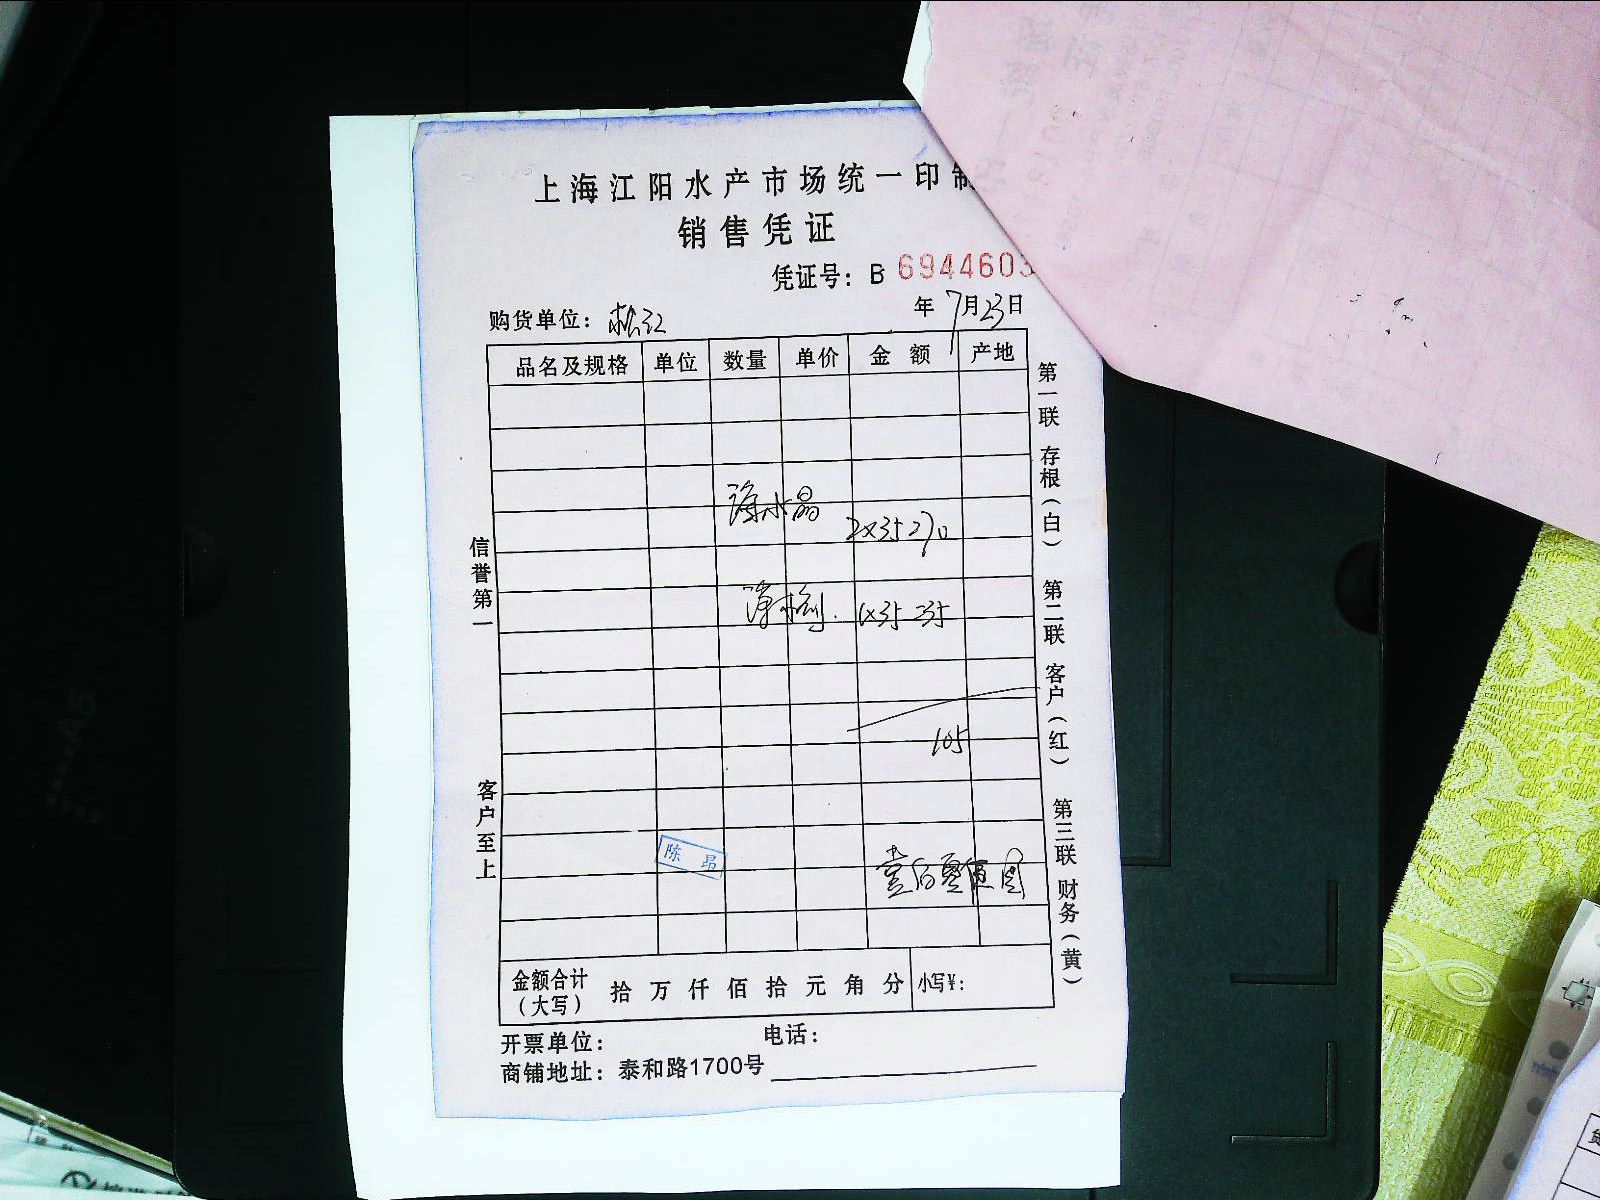 上海江阳水产市场统一印制
销售凭证
凭证号：B 6944603
购货单位：松江 年7月23日
品名及规格 单位 数量 单价 金额 产地
水晶 2×35=70
1×35=35
105
陈昂
壹佰零伍圆
金额合计（大写） 拾万仟佰拾元角分 小写¥：
开票单位： 电话：
商铺地址：泰和路1700号
信誉第一
客户至上
第一联 存根（白）
第二联 客户（红）
第三联 财务（黄）